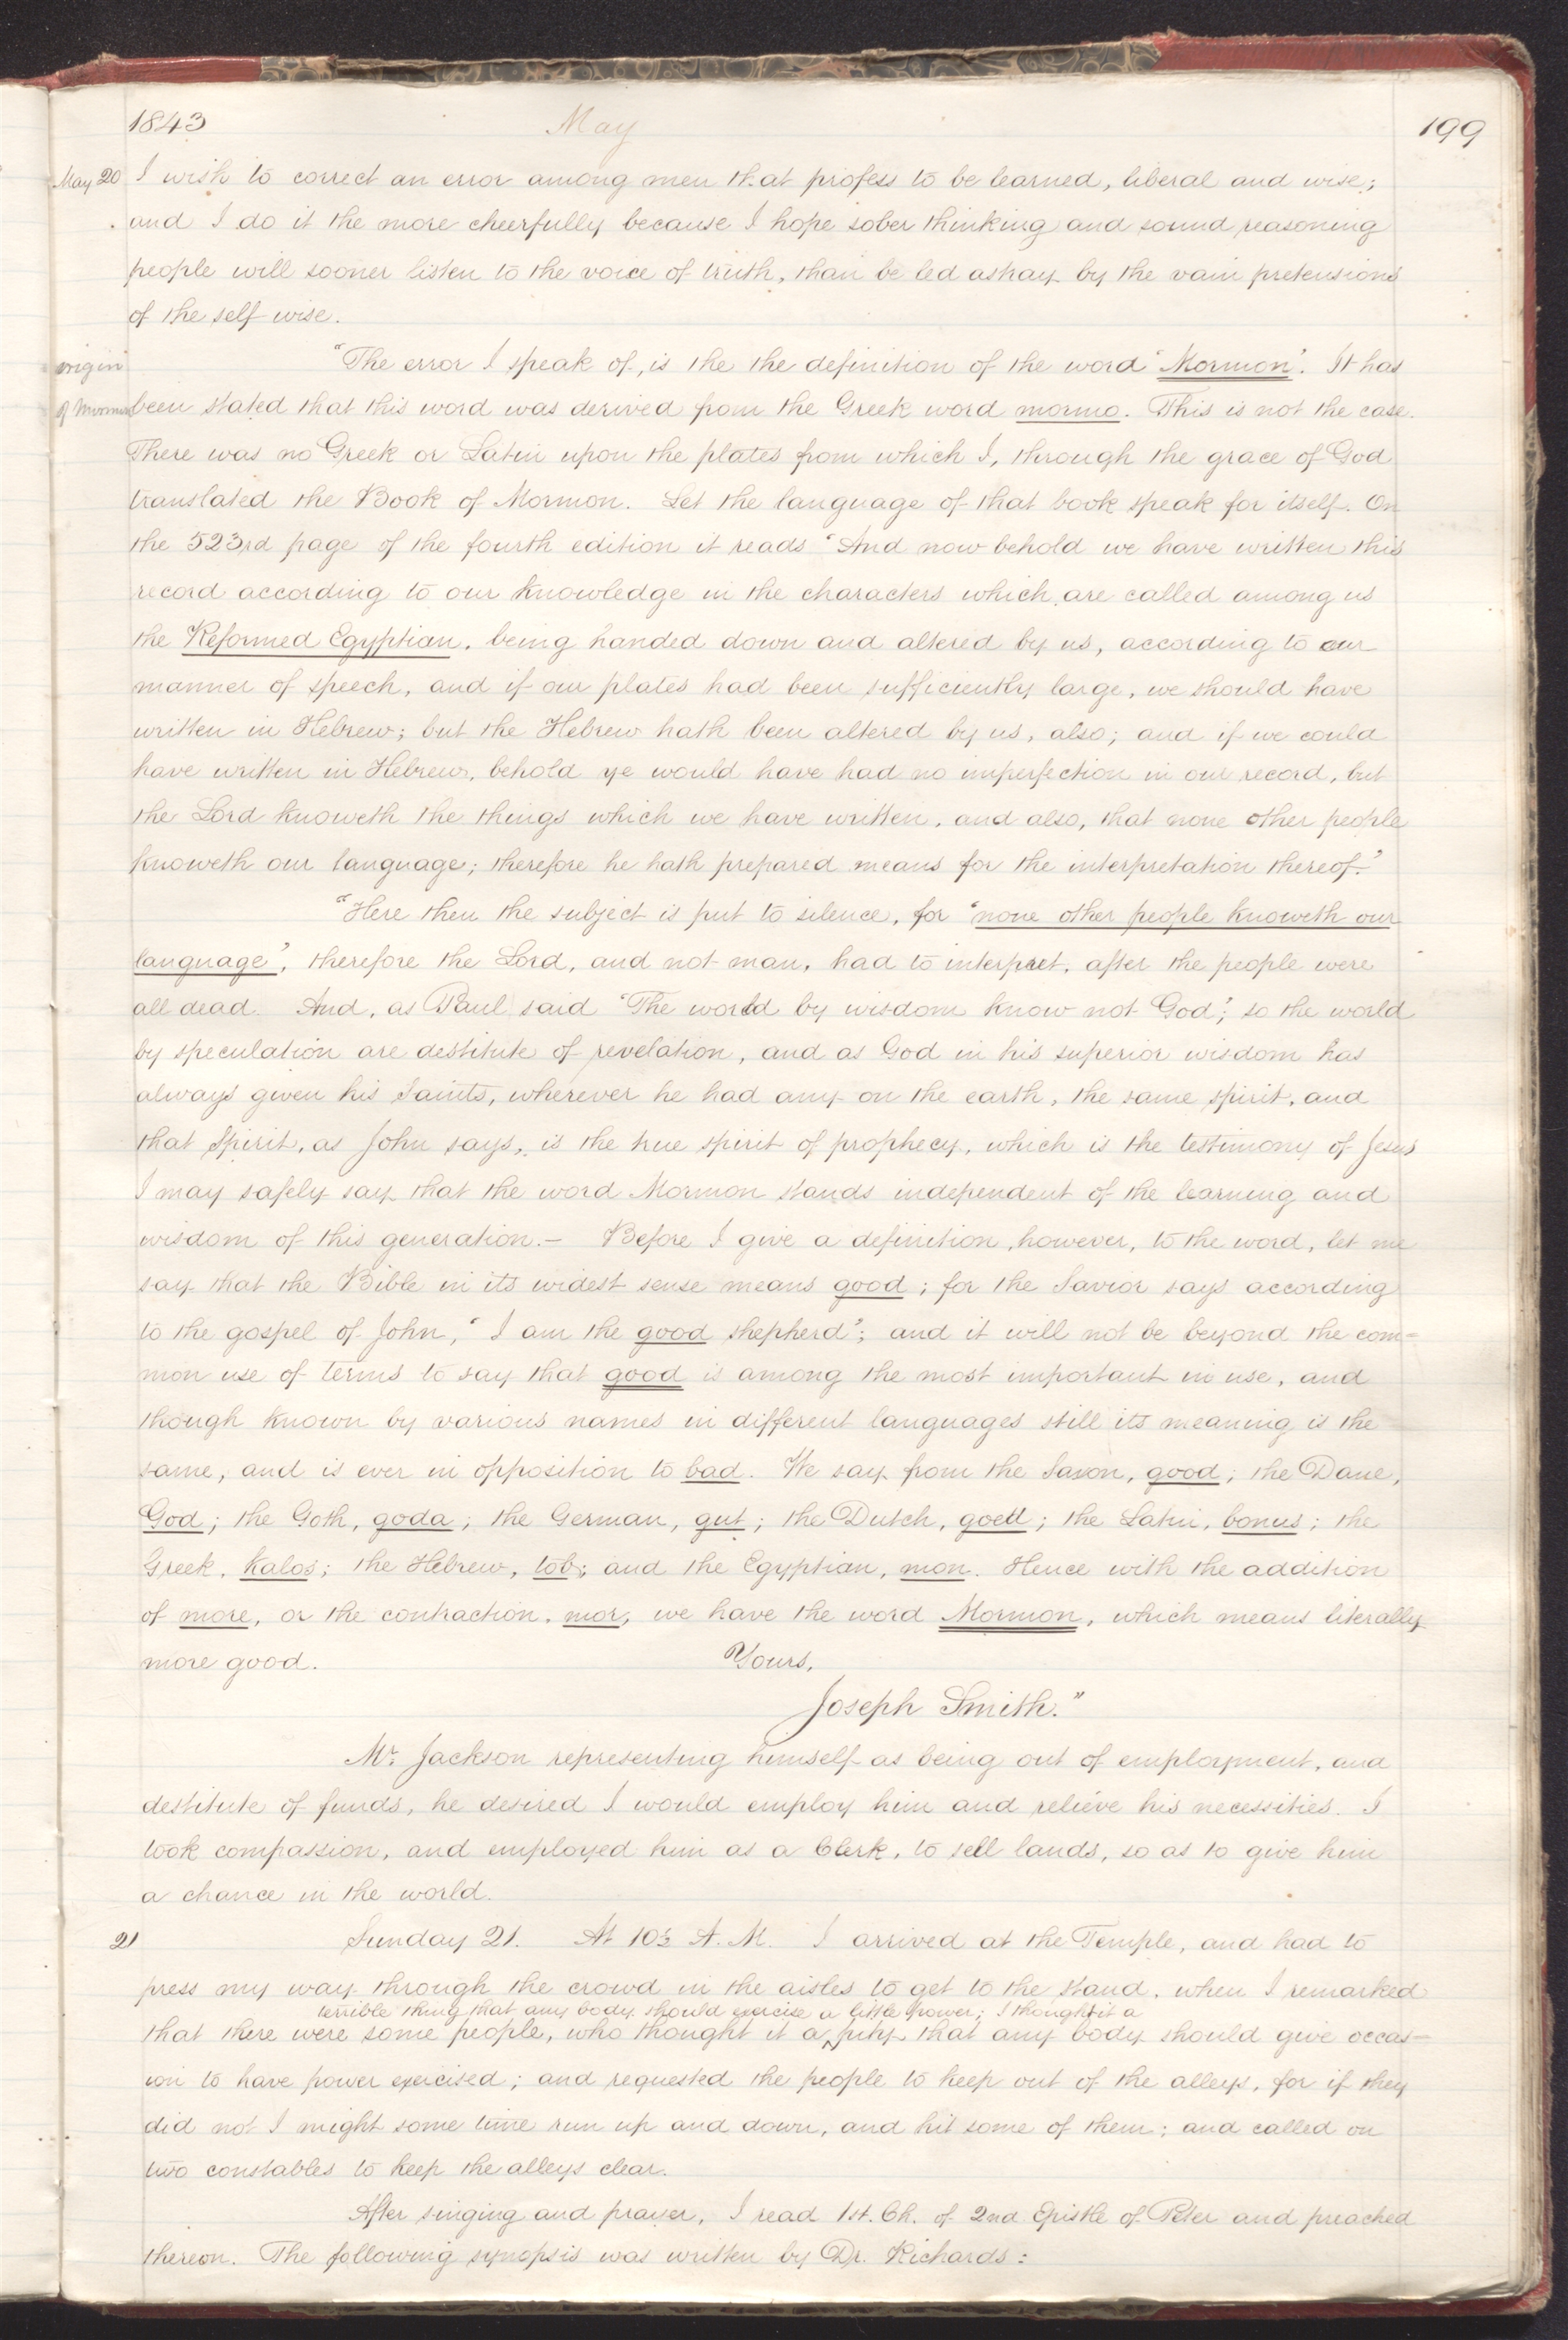 1843 May 199
May 20 I wish to correct an error among men that profess to be learned, liberal and wise;
and I do it the more cheerfully because I hope sober thinking and sound reasoning
people will sooner listen to the voice of truth, than be led astray by the vain pretensions
of the self wise.
origin "The error I speak of, is the the definition of the word "Mormon". It has
of Mormon been stated that this word was derived from the Greek word mormo. This is not the case.
There was no Greek or Latin upon the plates from which I, through the grace of God
translated the Book of Mormon. Let the language of that book speak for itself. On
the 523rd page of the fourth edition it reads "And now behold we have written this
record according to our knowledge in the characters which are called among us
the Reformed Egyptian, being handed down and altered by us, according to our
manner of speech, and if our plates had been sufficiently large, we should have
written in Hebrew; but the Hebrew hath been altered by us, also; and if we could
have written in Hebrew, behold ye would have had no imperfection in our record, but
the Lord knoweth the things which we have written, and also, that none other people
knoweth our language; therefore he hath prepared means for the interpretation thereof."
"Here then the subject is put to silence, for "none other people knoweth our
language", therefore the Lord, and not man, had to interpret, after the people were
all dead. And, as Paul said "The world by wisdom know not God"; so the world
by speculation are destitute of revelation, and as God in his superior wisdom has
always given his Saints, wherever he had any on the earth, the same spirit, and
that Spirit, as John says, is the true spirit of prophecy, which is the testimony of Jesus
I may safely say that the word Mormon stands independent of the learning and
wisdom of this generation.— Before I give a definition, however, to the word, let me
say that the Bible in its widest sense means good; for the Savior says according
to the gospel of John, "I am the good shepherd"; and it will not be beyond the com=
mon use of terms to say that good is among the most important in use, and
though known by various names in different languages still its meaning is the
same, and is ever in opposition to bad. We say from the Saxon, good; the Dane,
God; the Goth, goda; the German, gut; the Dutch, goed; the Latin, bonus; the
Greek, kalos; the Hebrew, tob; and the Egyptian, mon. Hence with the addition
of more, or the contraction, mor, we have the word Mormon, which means literally
more good. Yours,
Joseph Smith."
Mr. Jackson representing himself as being out of employment, and
destitute of funds, he desired I would employ him and relieve his necessities. I
took compassion, and employed him as a Clerk, to sell lands, so as to give him
a chance in the world.
21 Sunday 21. At 10½ A.M. I arrived at the Temple, and had to
press my way through the crowd in the aisles to get to the stand, when I remarked
terrible thing that any body should exercise a little power; I thought it a
that there were some people, who thought it a pity that any body should give occas-
ion to have power exercised; and requested the people to keep out of the alleys, for if they
did not I might some time run up and down, and hit some of them; and called on
two constables to keep the alleys clear.
After singing and prayer, I read 1st. Ch. of 2nd Epistle of Peter and preached
thereon. The following synopsis was written by Dr. Richards: